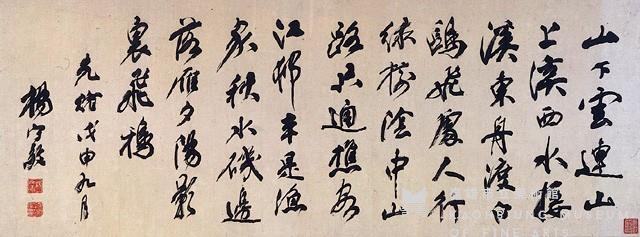 山下雲連山
上溪西水接
溪東舟渡白
鷗飛處人行
綠樹陰中山
路只通樵客
江邨半是漁
家秋水磯邊
落雁夕陽影
裏飛鴉
光緒戊申九月
楊守敬
高雄市立美術館
KAOHSIUNG MUSEUM
OF FINE ARTS